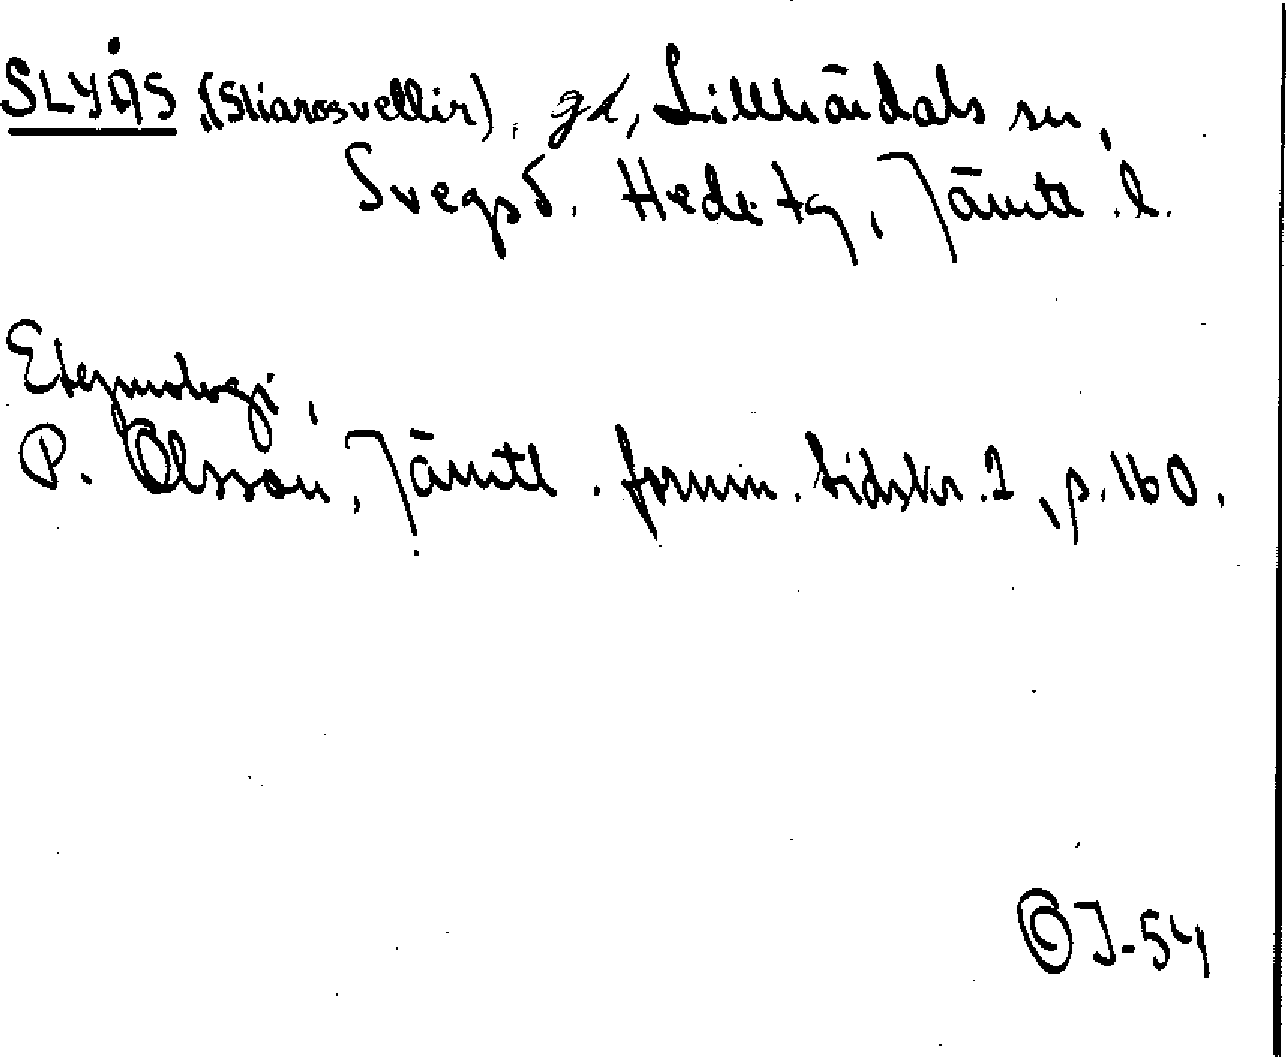 SLYÅS, (Sliarosvellir), gd, Lillhärdals sn,
Svegs d. Hede tg, Jämtl. l.
Etymologi,
P. Olsson, Jämtl. fornm. tidskr. 1, p. 160.
OJ-54